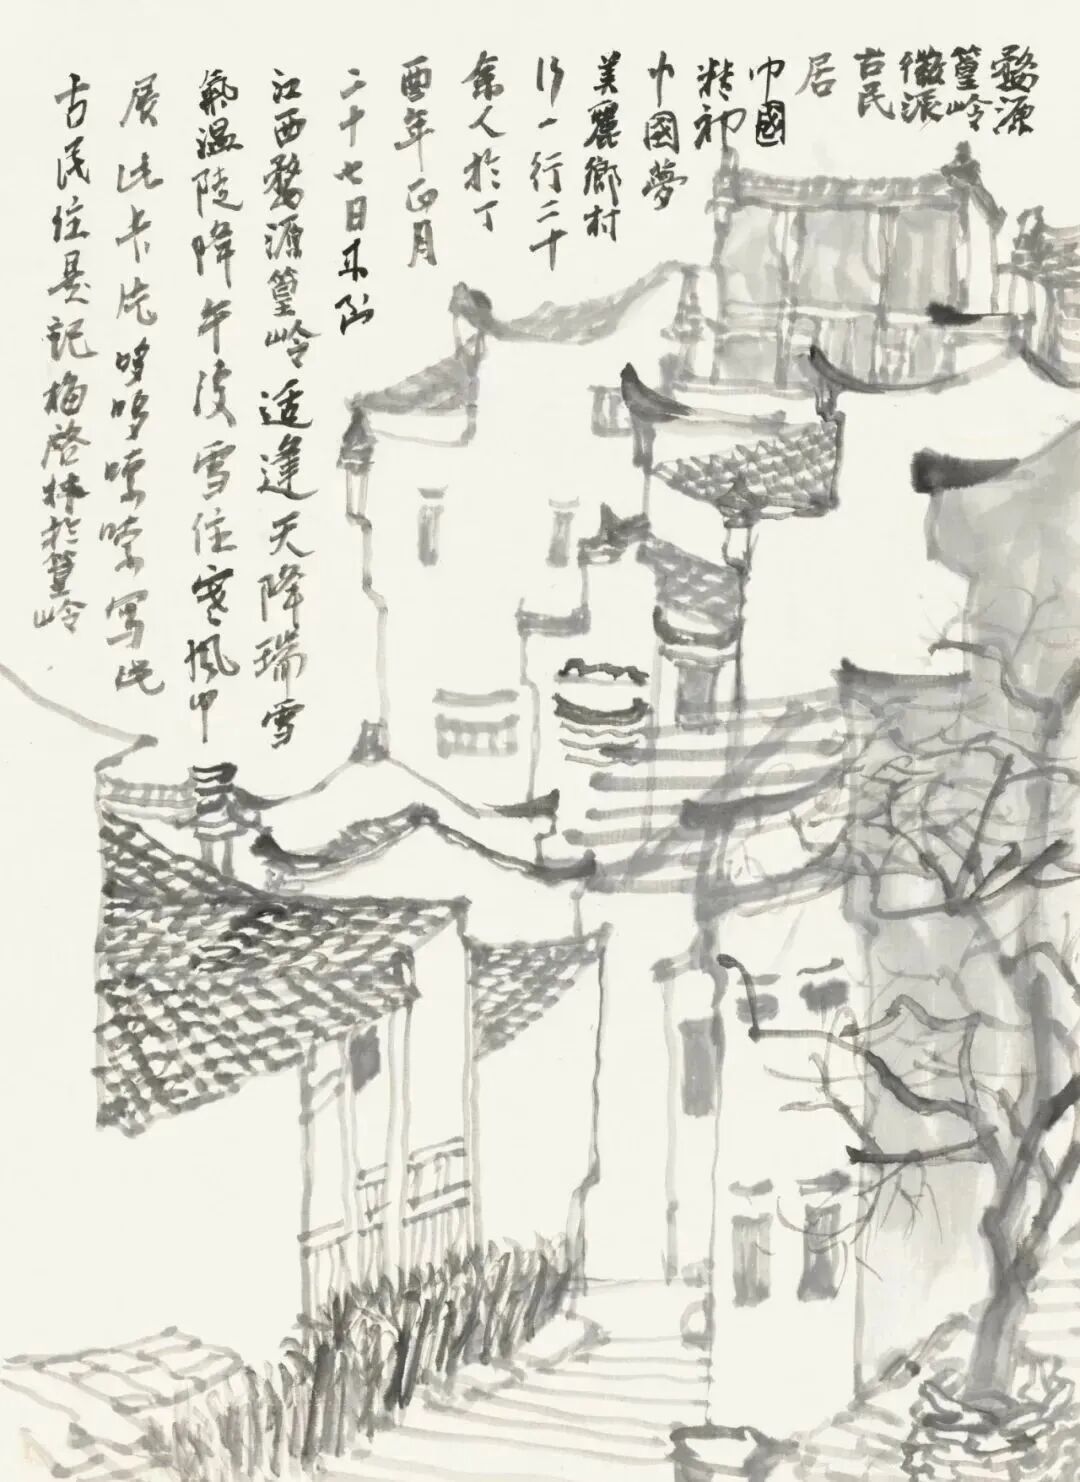 婺源
篁岭
徽派
古民
居
中國
精神
中國夢
美麗鄉村
行一行二十
余人於丁
酉年正月
二十七日来到
江西婺源篁岭适逢天降瑞雪
氣温陡降午後雪住寒風中
展此卡片哆哆嗦嗦写此
古民住居记梅啓林於篁岭